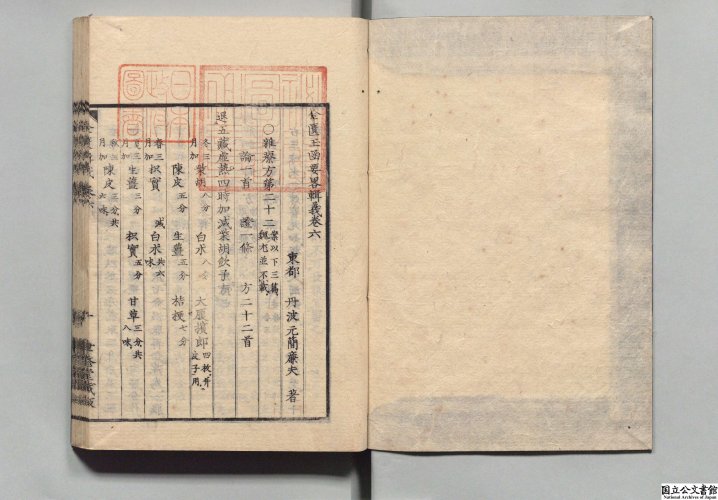 金匱玉函要畧輯義卷六
東都 丹波元簡廉夫 著
○雜療方第二十二 案以下三篇、魏尤並不載、
論一首 證一條 方二十二首
退五藏虛熱四時加減柴胡飲子方
冬三月加 柴胡八分 白朮八分 大腹檳郎四枚、并皮子用、
陳皮五分 生薑五分 桔梗七分
春三月加 枳實 減白朮共六味
夏三月加 生薑三分 枳實五分 甘草三分共八味、
秋三月加 陳皮三分共六味
日本
圖書
國立公文書館
National Archives of Japan